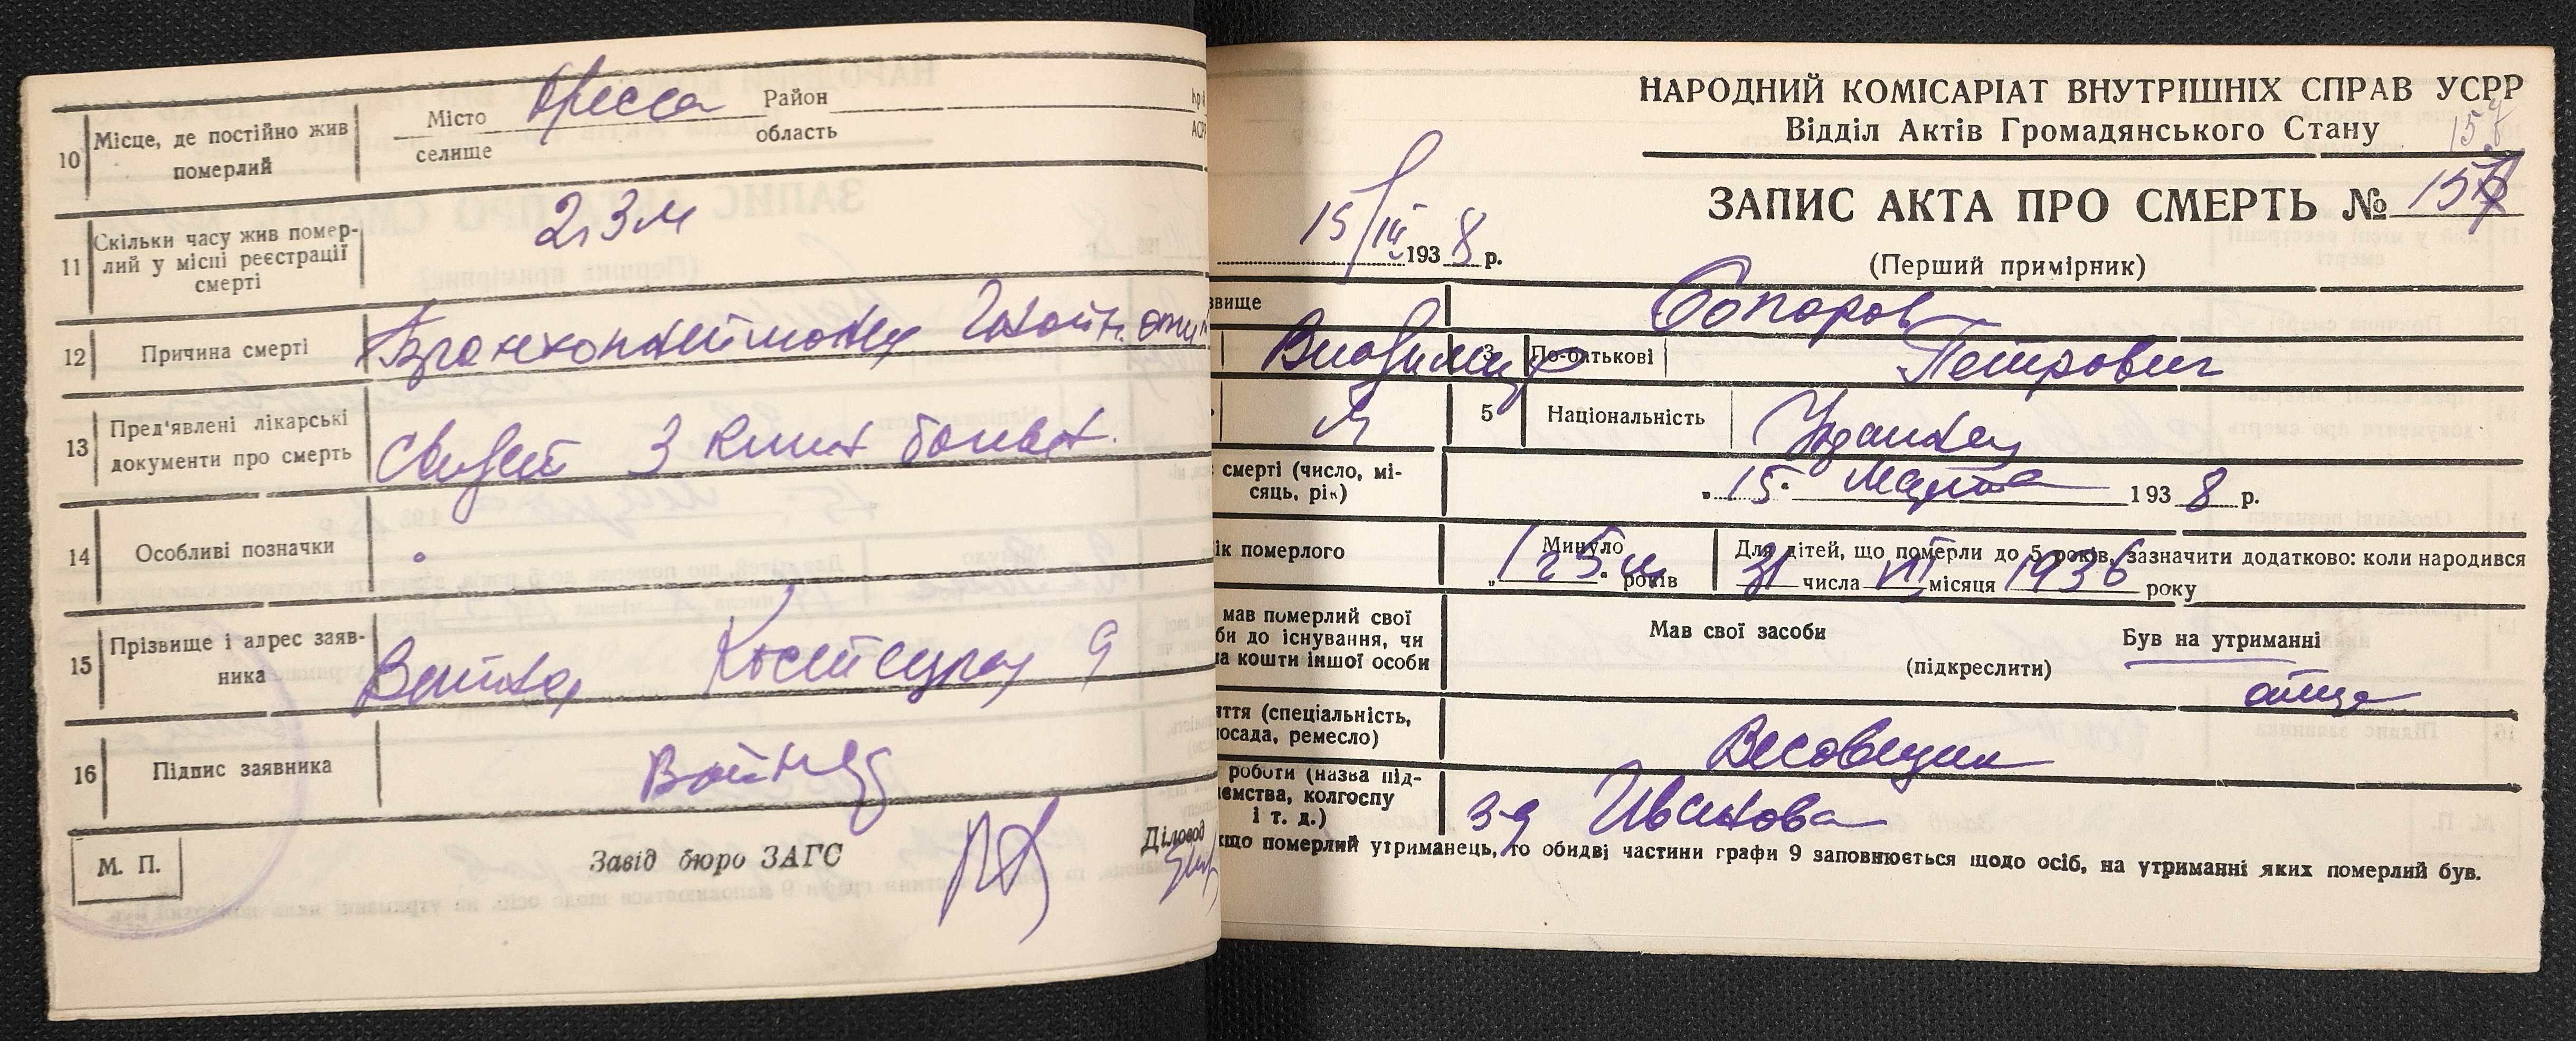 10 Місце, де постійно жив померлий
Місто Одесса Район
селище область
11 Скільки часу жив помер-
лий у місці реєстрації
смерті
2,3м
12 Причина смерті
13 Пред'явлені лікарські
документи про смерть
3 клин
14 Особливі позначки
15 Прізвище і адрес заяв-
ника
9
16 Підпис заявника
М. П.
Завід бюро ЗАГС
Діловод
НАРОДНИЙ КОМІСАРІАТ ВНУТРІШНІХ СПРАВ УСРР
Відділ Актів Громадянського Стану
ЗАПИС АКТА ПРО СМЕРТЬ №
15/III 1938 р.
(Перший примірник)
звище
Владимир 3 По-батькові Петрович
М 5 Національність
смерті (число, мі-
сяць, рік)
„15" Марта 1938 р.
ік померлого
Минуло
„1 г 5 м" років
Для дітей, що померли до 5 років, зазначити додатково: коли народився
31 числа місяця 1936 року
мав померлий свої
би до існування, чи
на кошти іншої особи
Мав свої засоби
(підкреслити)
Був на утриманні
отца
яття (спеціальність,
посада, ремесло)
Весовщик
роботи (назва під-
ємства, колгоспу
і т. д.)
з-д Иванова
кщо померлий утриманець, то обидві частини графи 9 заповнюється щодо осіб, на утриманні яких померлий був.